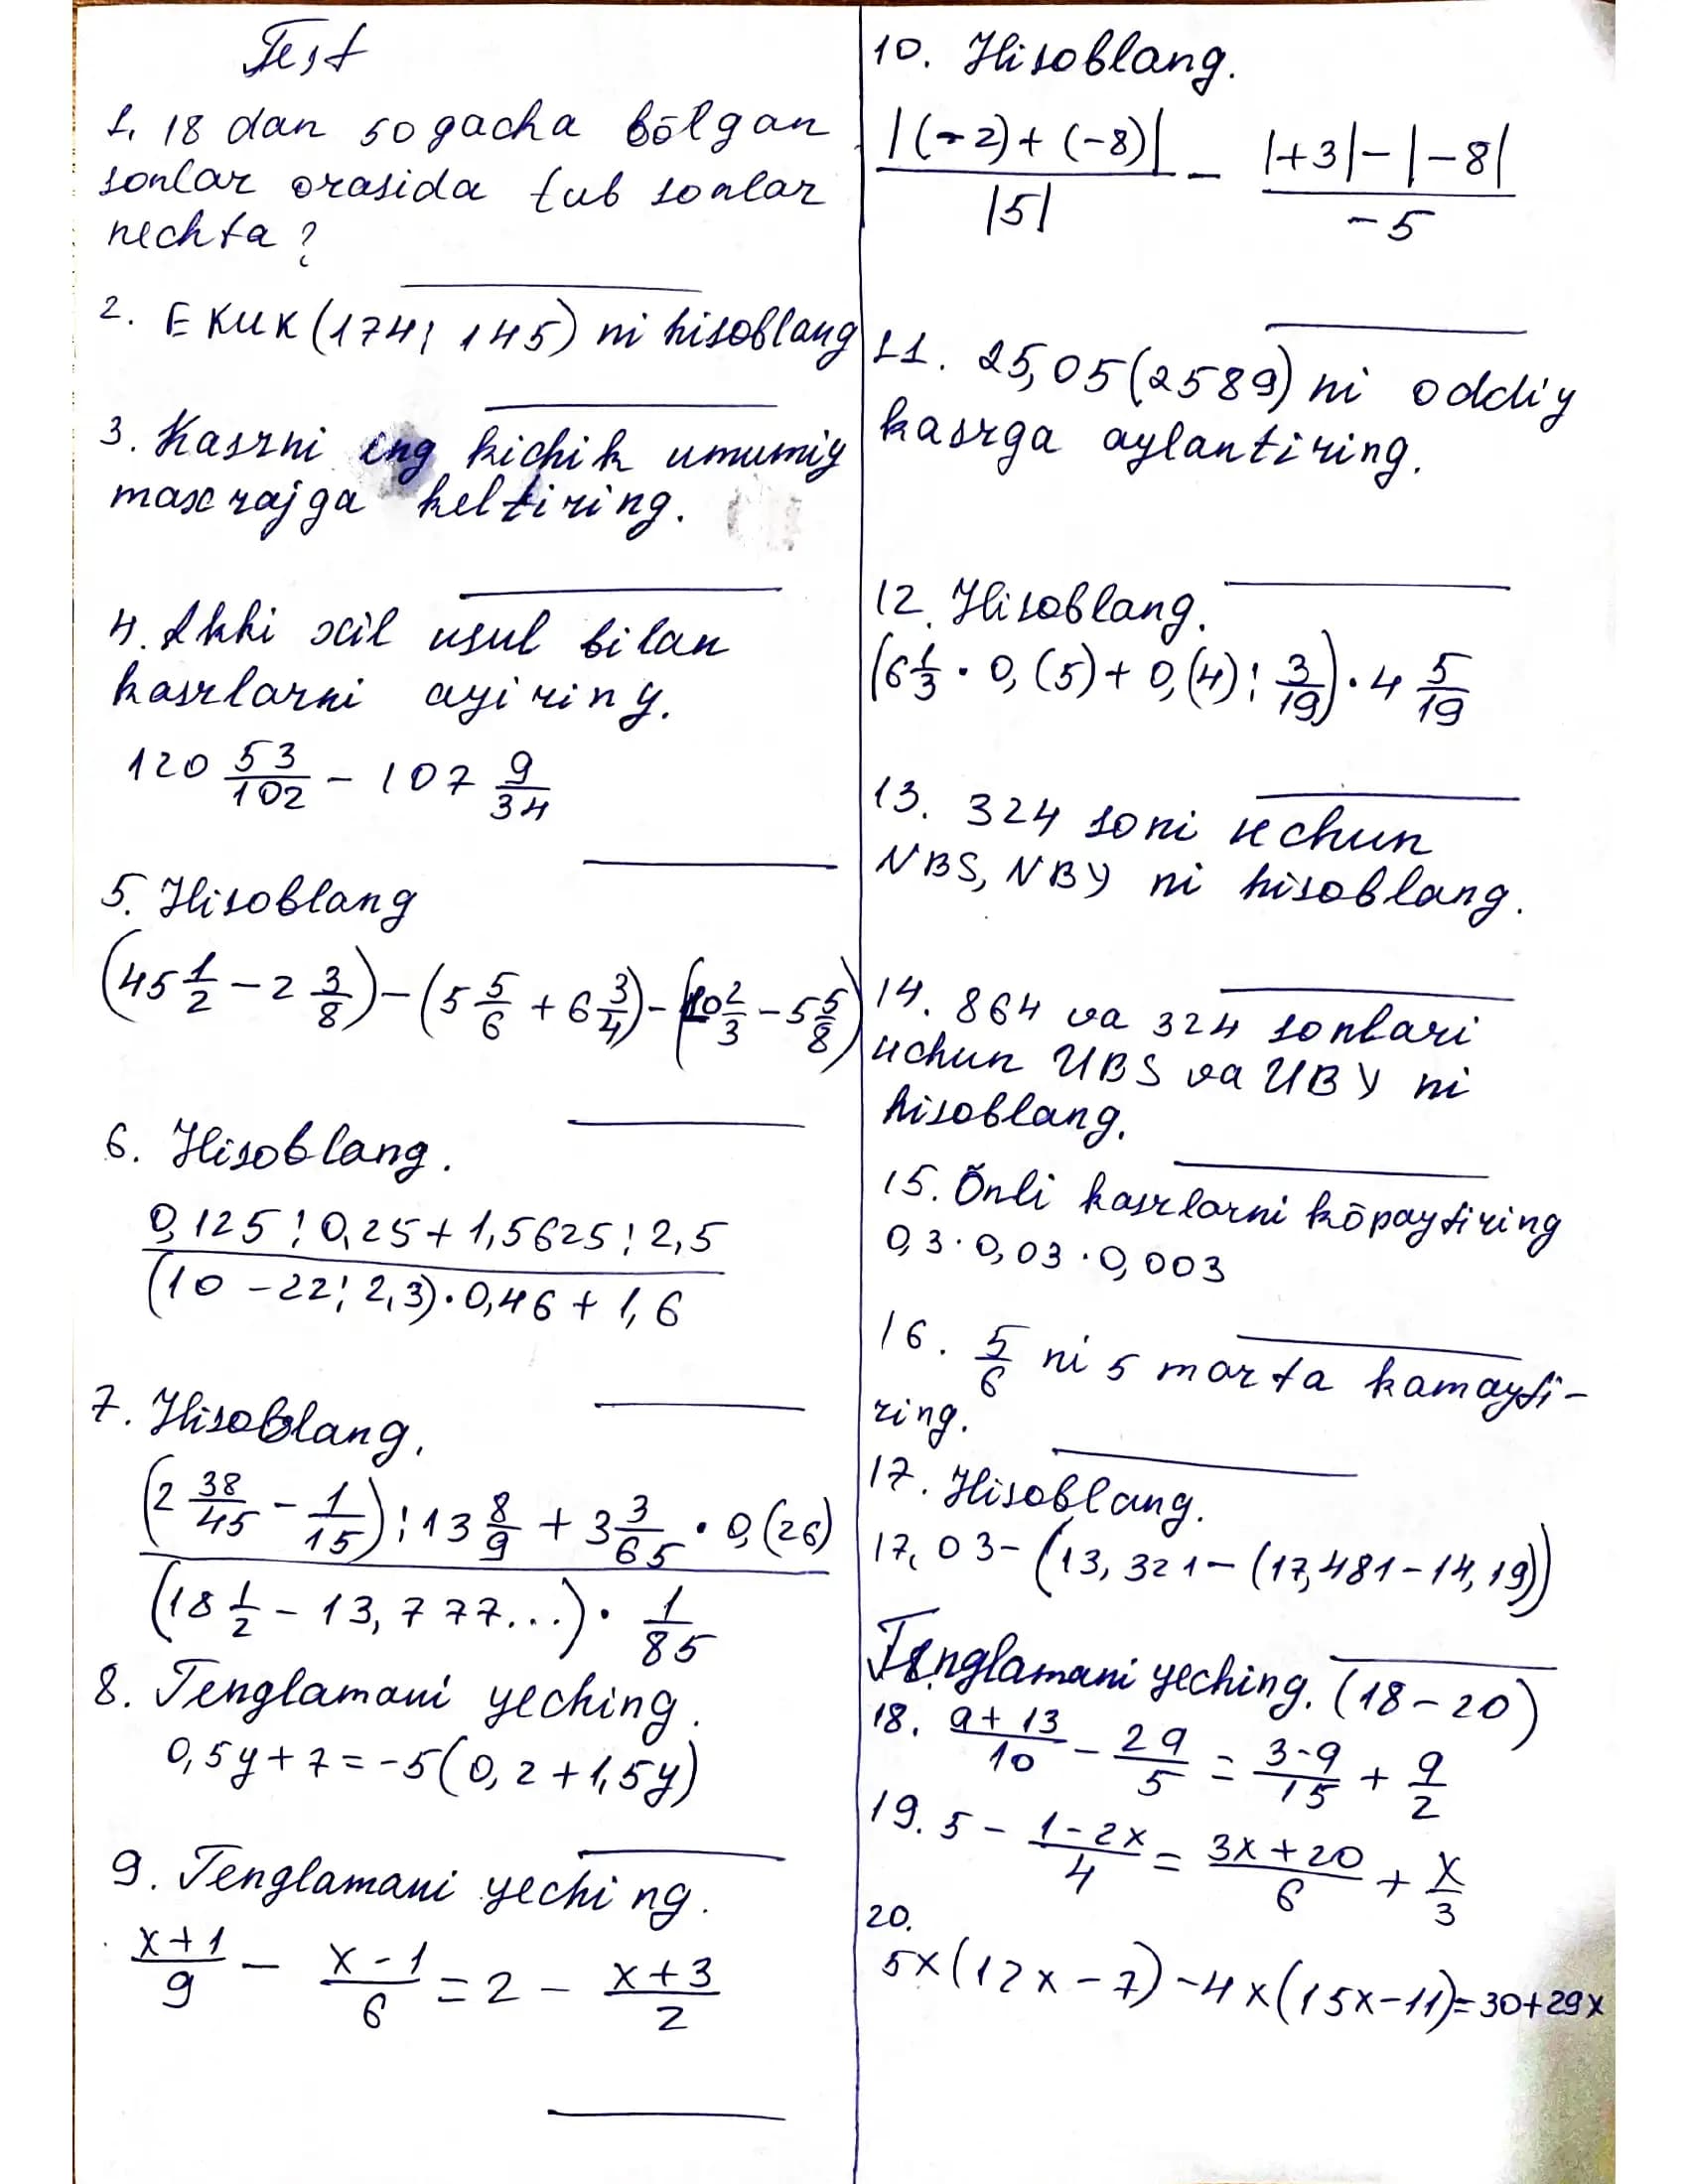 Test
1. 18 dan 50 gacha bōlgan
sonlar orasida tub sonlar
nechta?
2. EKUK(174; 145) ni hisoblang
3. Kasrni eng kichik umumiy
maxrajga keltiring.
4. Ikki xil usul bilan
kasrlarni ayiring.
120 53/102 - 107 9/34
5. Hisoblang
(45 1/2 - 2 3/8) - (5 5/6 + 6 3/4) - (10 2/3 - 5 5/8)
6. Hisoblang.
0,125 : 0,25 + 1,5625 : 2,5
(10 - 22 : 2,3) · 0,46 + 1,6
7. Hisoblang.
(2 38/45 - 1/15) : 13 8/9 + 3 3/65 · 0,(26)
(18 1/2 - 13,777...) · 1/85
8. Tenglamani yeching.
0,5y + 7 = -5(0,2 + 1,5y)
9. Tenglamani yeching.
x+1/9 - x-1/6 = 2 - x+3/2
10. Hisoblang.
|(-2) + (-8)|/|5| - |+3| - |-8|/-5
11. 25,05(2589) ni oddiy
kasrga aylantiring.
12. Hisoblang.
(6 1/3 · 0,(5) + 0,(4) : 3/19) · 4 5/19
13. 324 soni uchun
NBS, NBY ni hisoblang.
14. 864 va 324 sonlari
uchun UBS va UBY ni
hisoblang.
15. Ōnli kasrlarni kōpaytiring
0,3 · 0,03 · 0,003
16. 5/6 ni 5 marta kamayti-
ring.
17. Hisoblang.
17,03 - (13,321 - (17,481 - 14,19))
Tenglamani yeching. (18-20)
18. a+13/10 - 2a/5 = 3-a/15 + a/2
19. 5 - 1-2x/4 = 3x+20/6 + x/3
20.
5x(12x - 7) - 4x(15x - 11) = 30 + 29x